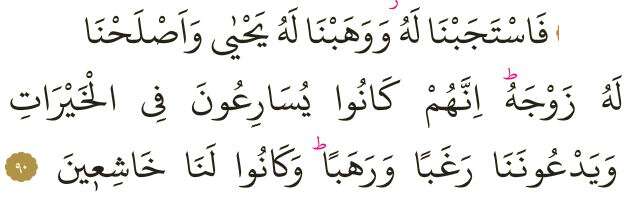 فَاسْتَجَبْنَا لَهُ وَوَهَبْنَا لَهُ يَحْيٰى وَاَصْلَحْنَا
لَهُ زَوْجَهُ ؕ اِنَّهُمْ كَانُوا يُسَارِعُونَ فِى الْخَيْرَاتِ
وَيَدْعُونَنَا رَغَبًا وَرَهَبًا ؕ وَكَانُوا لَنَا خَاشِعٖينَ ٩٠